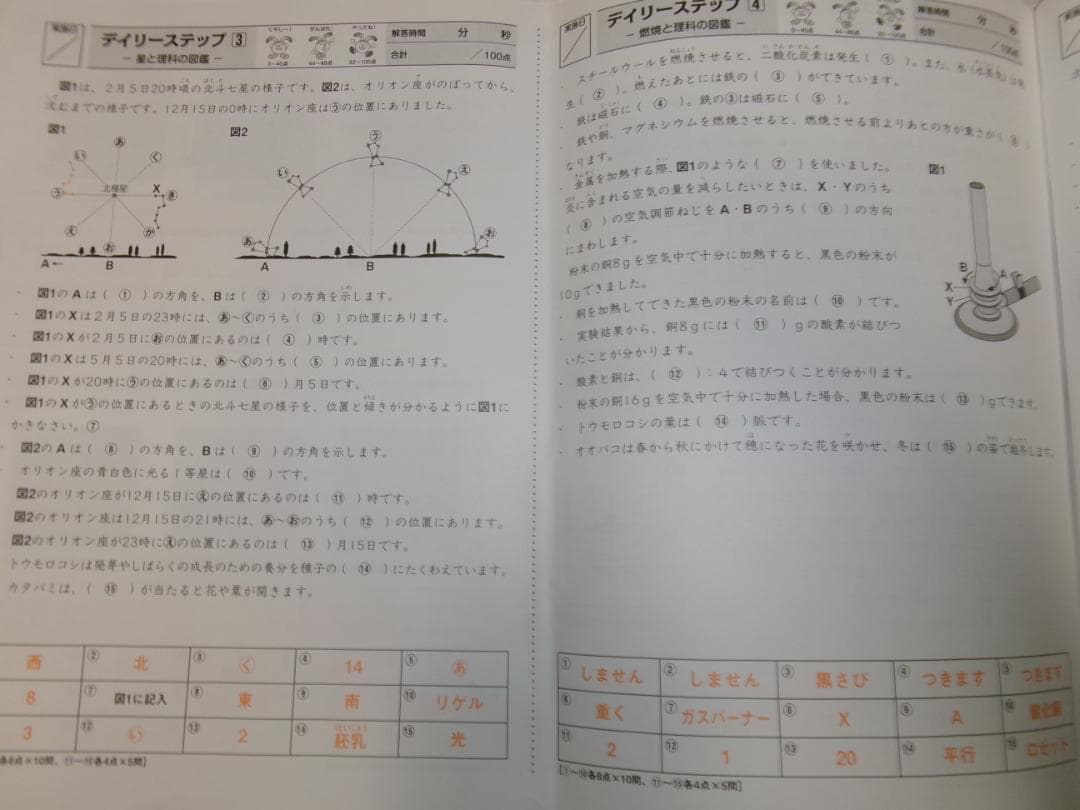 実施日
デイリーステップ 3
－ 星と理科の図鑑 －
くやしー！
がんばた！
やったね！
0～40点
44～88点
92～100点
解答時間 分 秒
合計 /100点
図1は、2月5日20時頃の北斗七星の様子です。図2は、オリオン座がのぼってから、
沈むまでの様子です。12月15日の0時にオリオン座はうの位置にありました。
図1
あ
い
く
う
北極星
X
き
え
お
か
A←
B
図2
う
い
え
あ
お
A
B
・ 図1のAは（ ① ）の方角を、Bは（ ② ）の方角を示します。
・ 図1のXは2月5日の23時には、あ～くのうち（ ③ ）の位置にあります。
・ 図1のXが2月5日におの位置にあるのは（ ④ ）時です。
・ 図1のXは5月5日の20時には、あ～くのうち（ ⑤ ）の位置にあります。
・ 図1のXが20時にうの位置にあるのは（ ⑥ ）月5日です。
・ 図1のXがうの位置にあるときの北斗七星の様子を、位置と傾きが分かるように図1に
かきなさい。⑦
・ 図2のAは（ ⑧ ）の方角を、Bは（ ⑨ ）の方角を示します。
オリオン座の青白色に光る1等星は（ ⑩ ）です。
図2のオリオン座が12月15日にえの位置にあるのは（ ⑪ ）時です。
図2のオリオン座は12月15日の21時には、あ～おのうち（ ⑫ ）の位置にあります。
図2のオリオン座が23時にえの位置にあるのは（ ⑬ ）月15日です。
トウモロコシは発芽やしばらくの成長のための養分を種子の（ ⑭ ）にたくわえています。
カタバミは、（ ⑮ ）が当たると花や葉が開きます。
西 ② 北 ③ く ④ 14 ⑤ あ
8 ⑦ 図1に記入 ⑧ 東 ⑨ 南 ⑩ リゲル
3 ⑫ い ⑬ 2 ⑭ 胚乳 ⑮ 光
各8点×10問、⑪～⑮各4点×5問]
実施日
デイリーステップ 4
－ 燃焼と理科の図鑑 －
0～40点
44～88点
92～100点
解答時間 分 秒
合計 /100点
スチールウールを燃焼させると、二酸化炭素は発生（ ① ）。また、水
生（ ② ）。燃えたあとには鉄の（ ③ ）ができています。
・ 鉄は磁石に（ ④ ）。鉄の③は磁石に（ ⑤ ）。
・ 鉄や銅、マグネシウムを燃焼させると、燃焼させる前よりあとの方が重さが（ ⑥ ）
なります。
・ 金属を加熱する際、図1のような（ ⑦ ）を使いました。
炎に含まれる空気の量を減らしたいときは、X・Yのうち
（ ⑧ ）の空気調節ねじをA・Bのうち（ ⑨ ）の方向
にまわします。
粉末の銅8gを空気中で十分に加熱すると、黒色の粉末が
10gできました。
・ 銅を加熱してできた黒色の粉末の名前は（ ⑩ ）です。
・ 実験結果から、銅8gには（ ⑪ ）gの酸素が結びつ
いたことが分かります。
・ 酸素と銅は、（ ⑫ ）：4で結びつくことが分かります。
・ 粉末の銅16gを空気中で十分に加熱した場合、黒色の粉末は（ ⑬ ）gできます。
・ トウモロコシの葉は（ ⑭ ）脈です。
・ オオバコは春から秋にかけて穂になった花を咲かせ、冬は（ ⑮ ）の姿で越冬します。
図1
B
A
X
Y
① しません ② しません ③ 黒さび ④ つきます ⑤ つきます
⑥ 重く ⑦ ガスバーナー ⑧ X ⑨ A ⑩ 酸化銅
⑪ 2 ⑫ 1 ⑬ 20 ⑭ 平行 ⑮ ロゼット
[①～⑩各8点×10問、⑪～⑮各4点×5問]